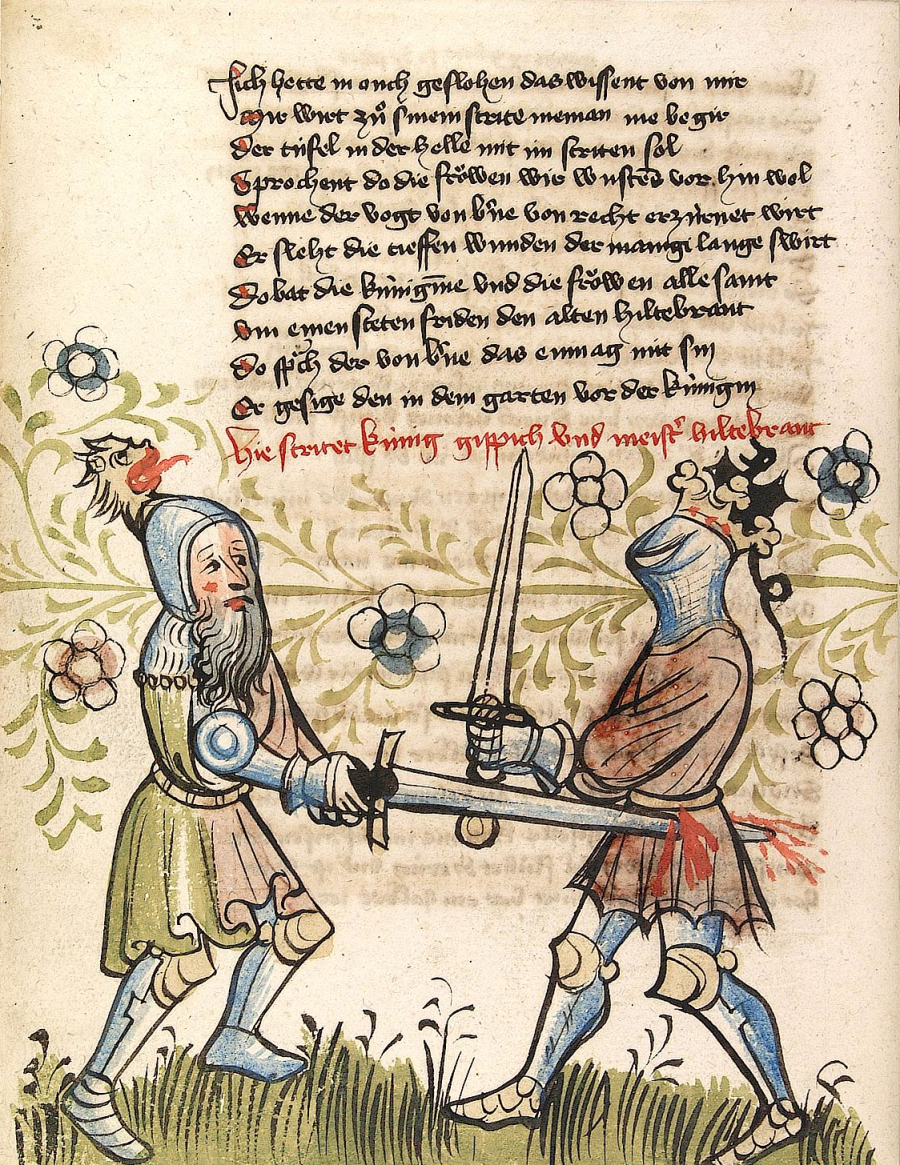 Sich hette in ouch geflohen das wissent von mir
Mir wirt zů sinem strite nieman me begir
Der tüfel in der helle mit im striten sol
Sprochent do die fröwen wir wustēs vor hin wol
Wenne der vogt von b'ne von recht erzürnet wirt
Er sleht die tieffen wunden der mangi lange swirt
Do bat die künigīne vnd die fröwen alle samt
Vm einen steten friden den alten hiltebrant
Do sp'ch der von b'ne das en mag nit sin
Er gesige den in dem garten vor der künigin
Hie stritet künig gippich vnd meist' hiltebrant